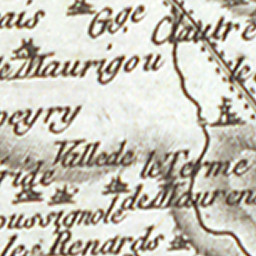 ais
Gge
Clautre
de Maurigou
le
peyry
Vallede
le Terme
ride
de Mauren
oussignole
les Renards